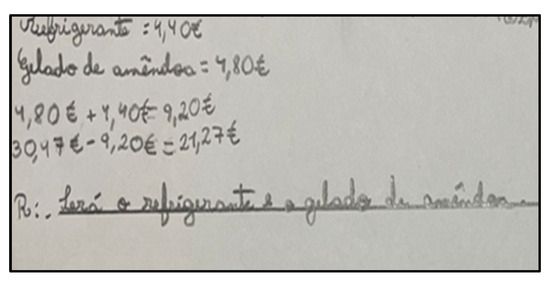 Refrigerante = 4,40€
Gelado de amêndoa = 4,80€
4,80€ + 4,40€ = 9,20€
30,47€ - 9,20€ = 21,27€
R:. Será o refrigerante e o gelado de amêndoa.